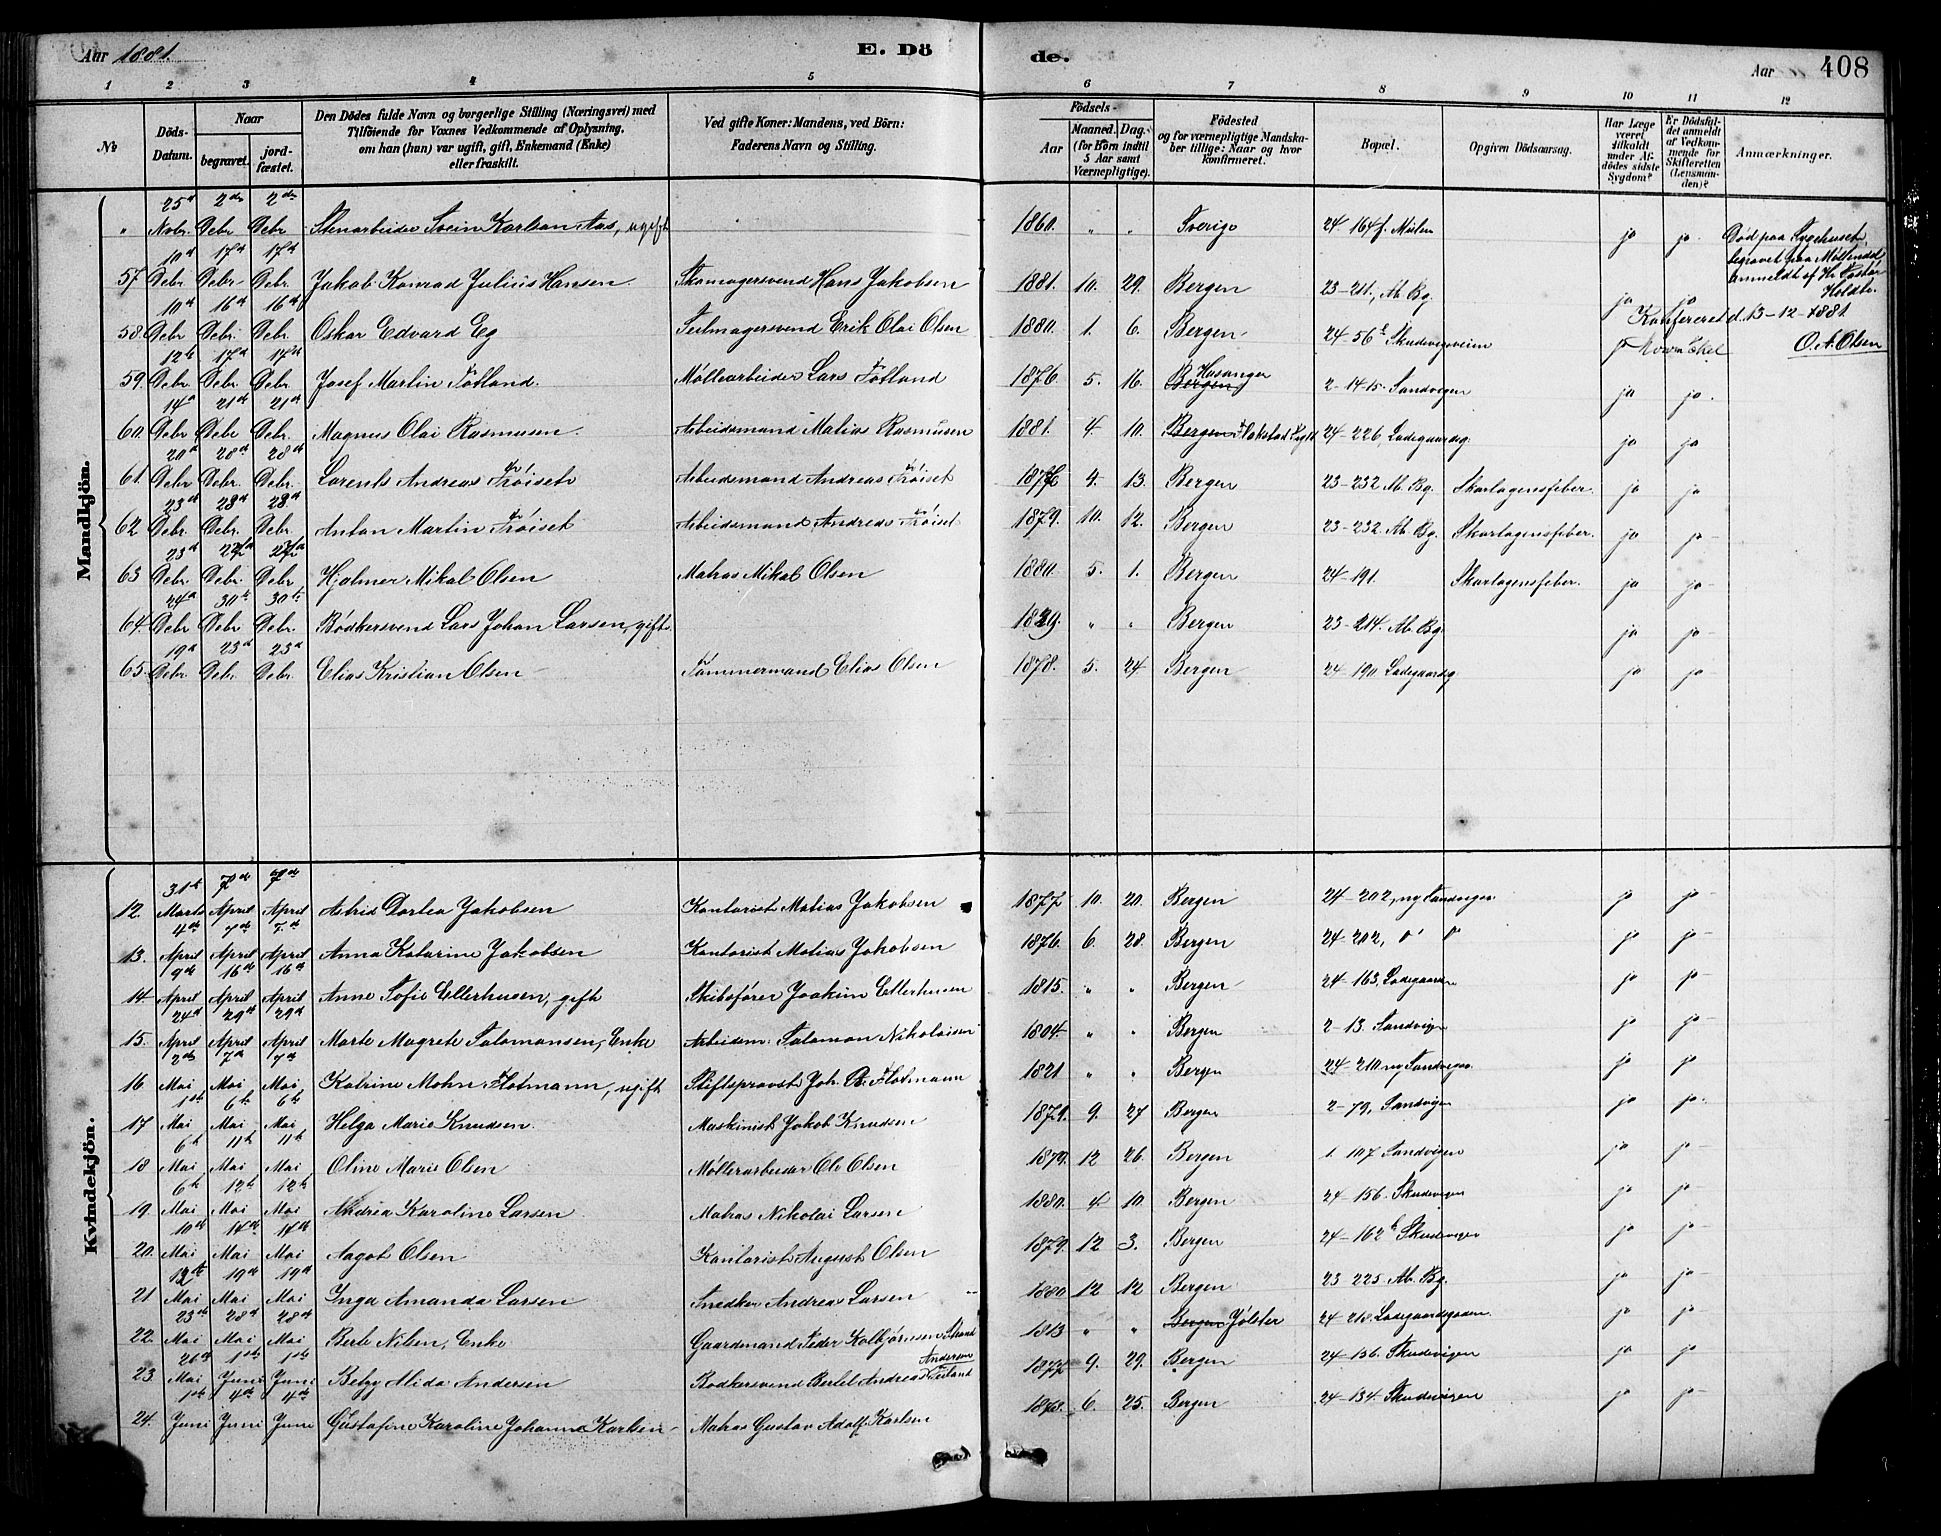 Aar 1881.
E. Dö
de.
Aar
408
1 2 3 4 5 6 7 8 9 10 11 12
No
Döds-Datum.
Naar
begravet.
jord-fæstet.
Den Dödes fulde Navn og borgerlige Stilling (Næringsvei) med
Tilföiende for Voxnes Vedkommende af Oplysning,
om han (hun) var ugift, gift, Enkemand (Enke)
eller fraskilt.
Ved gifte Koner: Mandens, ved Börn:
Faderens Navn og Stilling.
Födsels-
Aar
Maaned. Dag.
(for Börn indtil
5 Aar samt
Værnepligtige).
Födested
og for værnepligtige Mandska-
ber tillige: Naar og hvor
konfirmeret.
Bopæl.
Opgiven Dödsaarsag.
Har Læge
været
tilkaldt
under Af-
dödes sidste
Sygdom?
Er Dödsfal-
det anmeldt
af Vedkom-
mende for
Skifteretten
(Lensman-
den)?
Anmærkninger.
Mandkjön.
" 25d Novbr. 2den Debr 2den Debr Stenarbeider Svein Karlsen Aas, ugift 1860. " " Sverige 24-164f. Mulen ja ja. Död paa Sygehuset, begravet paa Møllendal, anmeldt af Hr Pastor Holdt.
57 10d Debr 17d Debr 17d Debr. Jakob Konrad Julius Hansen Skomagersvend Hans Jakobsen 1881. 10. 29. Bergen 23-211, Ab. Bg. ja ja
58. 10d Debr 16d Debr. 16d Debr. Oskar Edvard Eg Seilmagersvend Erik Olai Olsen 1880. 1. 6. Bergen 24-56 Skudevigsveien ja
Konfereret d. 13-12-1881
O. A. Olsen
59. 12t Debr. 17d Debr. 17d Debr. Josef Martin Totland. Møllearbeider Lars Totland 1876. 5. 16. Bergen Hosanger 2-14-15. Sandvigen ja ja.
60. 14d Debr 21d Debr 21d Debr. Magnus Olai Rasmusen. Arbeidsmand Matias Rasmusen 1881. 4. 10. Bergen 24-226, Ladegaardsg. ja ja
61. 20d Debr 28d Debr. 28d Debr. Lorents Andreas Frøiset Arbeidsmand Andreas Frøiset 1876 4. 13. Bergen 23-232 Ab. Bg. Skarlagensfeber. ja ja
62 23d Debr. 28d Debr. 28d Debr. Anton Martin Frøiset Arbeidsmand Andreas Frøiset 1879. 10. 12. Bergen 23-232. Ab. Bg. Skarlagensfeber. ja ja
63 23d Debr. 27d Debr. 27d Debr Hjalmer Mikal Olsen Matros Mikal Olsen 1880. 5. 1. Bergen 24-191. Skarlagensfeber. ja ja
64. 24d Debr 30te Debr 30te Debr. Bödkersvend Lars Johan Larsen, gift. 1829. " " Bergen 23-214. Ab. Bg. ja ja
65. 19d Debr. 23d Debr 23d Debr. Elias Kristian Olsen Tømmermand Elias Olsen 1878. 5. 24. Bergen 24-190 Ladegaardsg. ja ja
Kvindekjön.
12. 31te Marts 7de April 7de April Astrid Dortea Jakobsen Kontorist Matias Jakobsen 1877 10. 20. Bergen 24-202, ny Sandvigen ja ja
13. 4de April 7de April 7de April Anna Katarine Jakobsen Kontorist Matias Jakobsen 1876. 6. 28. Bergen 24-202, " " ja ja
14. 9de April 16de April 16de April Anne Sofie Ellerhusen, gift Skibsfører Joakim Ellerhusen 1815. " " Bergen 24-163. Ladegaarden ja ja
15. 24d April 29d April 29d April Marte Magrete Salomonsen, Enke Arbeidsm. Salomon Nikolaisen 1804. " " Bergen 2-13. Sandvigen ja ja
16. 2de Mai 7de Mai 7de Mai Katrine Mohn Flotmann, ugift Stiftsprovst Joh. B. Flotmann 1821 " " Bergen 24-210 ny Sandvigen ja ja
17 1ste Mai 6te Mai 6te Mai Helga Marie Knudsen. Maskinist Jakob Knudsen 1879. 9. 27 Bergen 2-79, Sandvigen ja ja.
18 6te Mai 11te Mai 11te Mai Oline Marie Olsen Møllerarbeider Ole Olsen 1879. 12 26. Bergen 1. 107 Sandvigen ja ja
19. 6te Mai 12te Mai 12te Mai Andrea Karoline Larsen Matros Nikolai Larsen 1880. 4. 10. Bergen 24-156. Skudevigen ja ja
20. 10de Mai 14de Mai 14de Mai Aagot Olsen Kontorist August Olsen 1879. 12 3. Bergen 24-162 Skudevigen ja ja
21 12te Mai 19de Mai 19de Mai Inga Amanda Larsen Snedker Andreas Larsen 1880 12 12 Bergen 23 225. Ab. Bg. ja ja
22. 23de Mai 28d Mai 28d Mai Berte Nilsen, Enke Gaardmand Peder Kolbjørnsen Strand 1813 " " Bergen Jølster 24-218. Ladegaardsgaden. ja ja
23. 26d Mai 1ste Juni 1ste Juni Betzy Alida Andersen Bodkersvend Bertel Andreas Andersen 1877 9. 29. Bergen 24-156. Skudevigen ja ja
24. 1ste Juni 4de Juni 4de Juni Gustafine Karoline Johanne Karlsen Matros Gustav Adolf Karlsen 1878. 6. 25. Bergen 24-134. Skudevigen ja ja